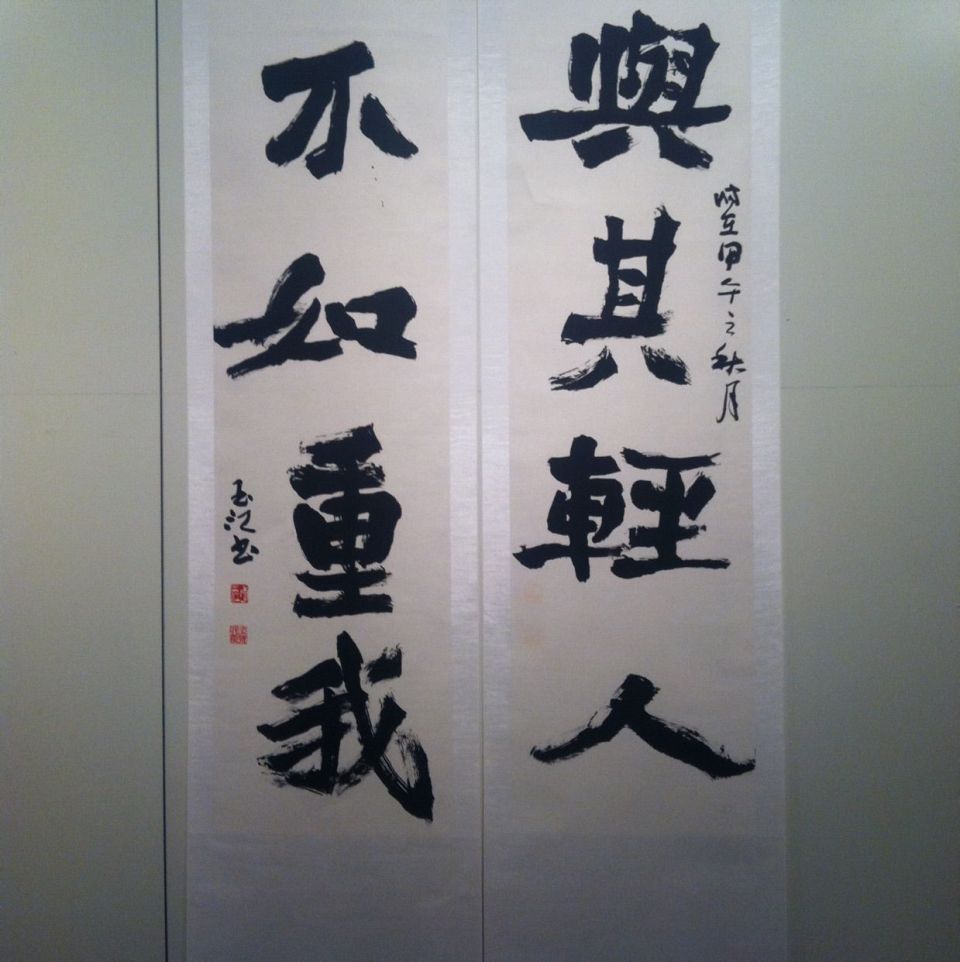 與其輕人
時在甲午之秋月
不如重我
玉江书